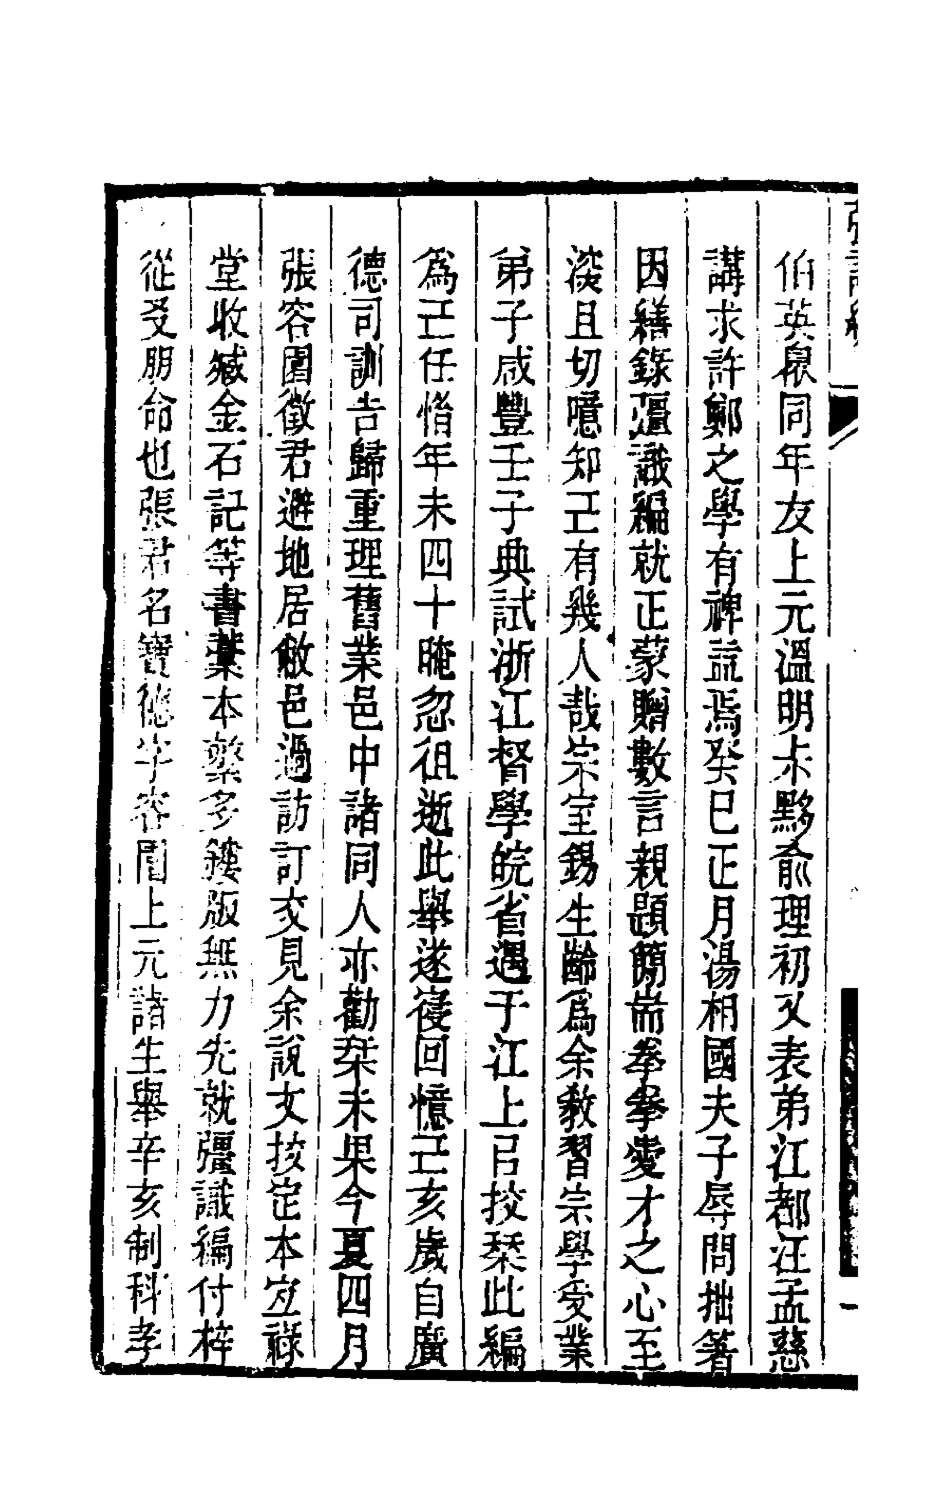 伯英泉同年友上元溫明朩黟俞理初又表弟江都汪孟慈
講求許鄭之學有禆益焉癸巳正月湯相國夫子辱問拙箸
因繕錄彊識編就正蒙贈數言親題簡耑拳拳愛才之心至
淡且切噫知己有幾人哉宗室錫生齡爲余教習宗學受業
弟子咸豐壬子典試浙江督學皖省遇于江上㠯挍栞此編
爲己任惜年未四十晻忽徂逝此舉遂寑回憶己亥歲自廣
德司訓告歸重理舊業邑中諸同人亦勸栞未果今夏四月
張容園徵君避地居敝邑過訪訂交見余說文挍定本宐祿
堂收臧金石記等書藁本繁多鏤版無力先就彊識編付梓
從㕛朋命也張君名寶德字容園上元諸生舉辛亥制科孝
彊識編
一